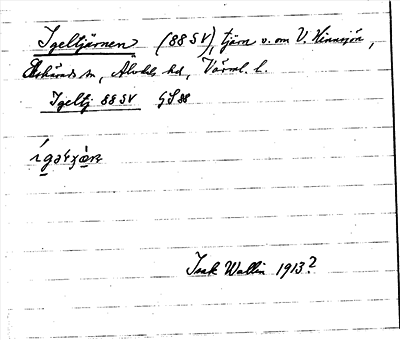 Igeltjärnen (88 SV), tjärn v. om V. Hinnsjön,
Ekshärads sn, Älvdals hd, Värml. l.
Igeltj 88 SV GS 88
Isak Wallin 1913?